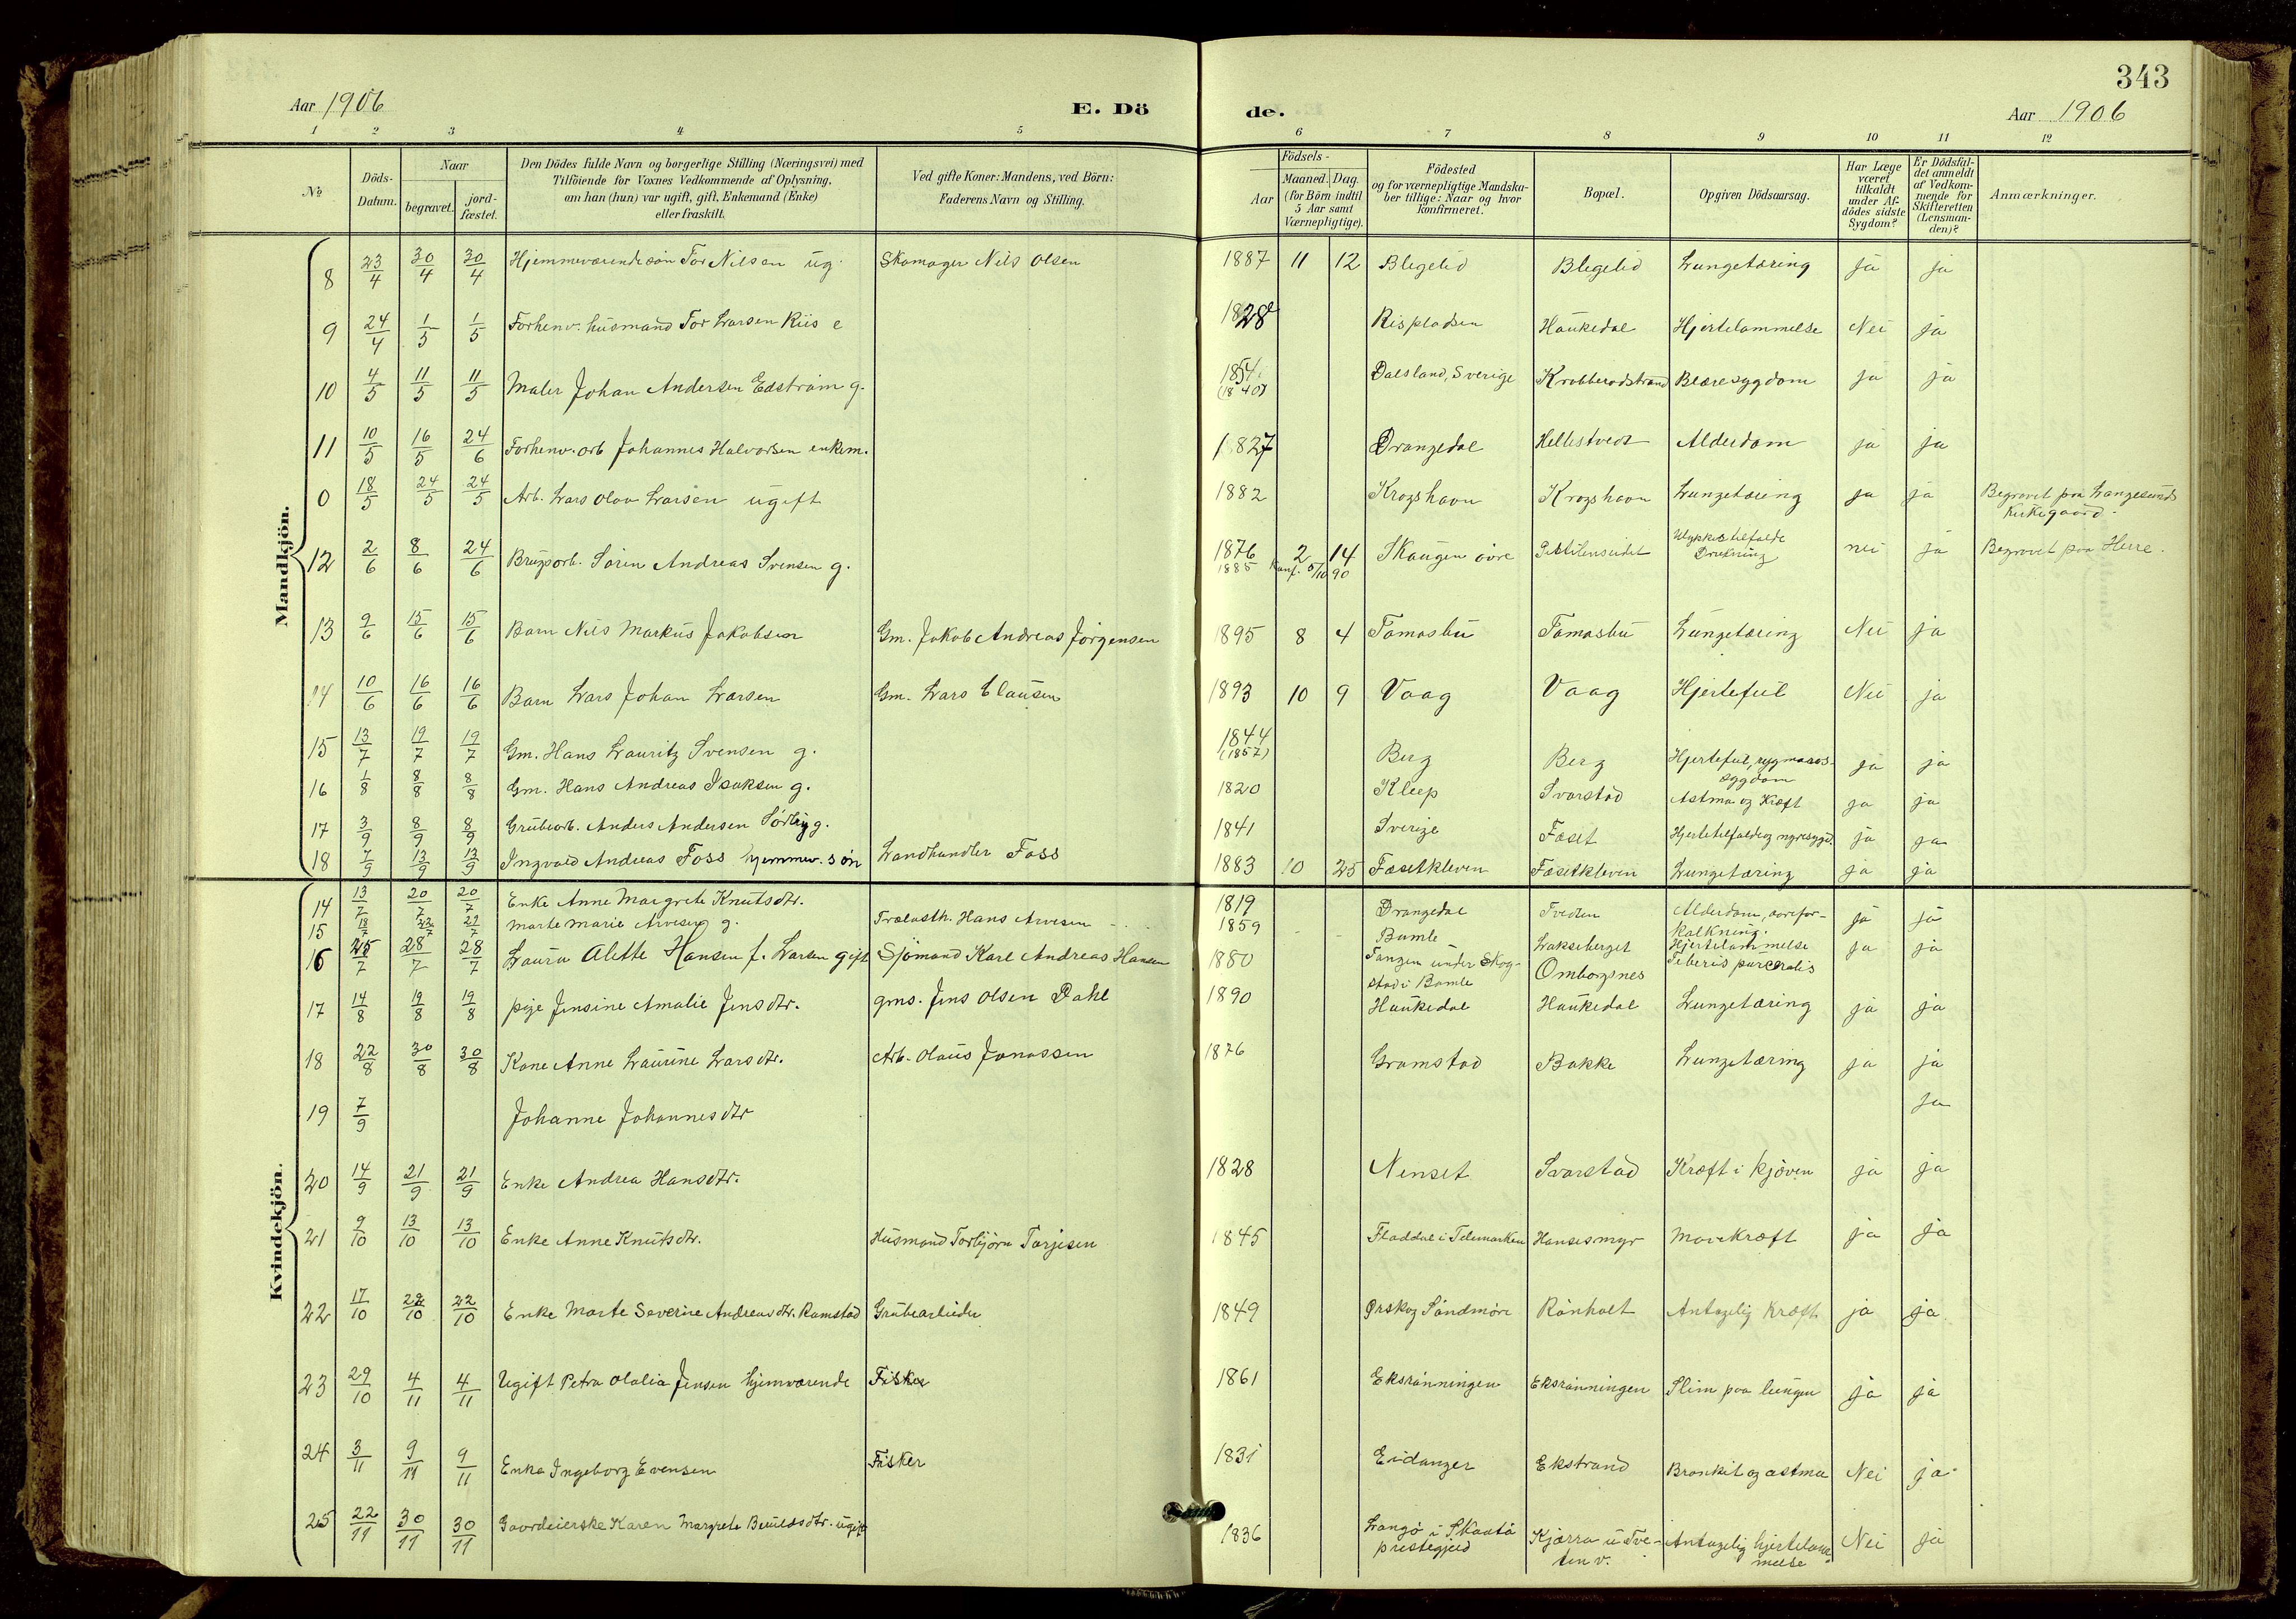 343
Aar 1906 E. Dö de. Aar 1906
1 2 3 4 5 6 7 8 9 10 11 12
№
Döds-Datum.
Naar
begravet.
jord-fæstet.
Den Dödes fulde Navn og borgerlige Stilling (Næringsvei) med
Tilföiende for Voxnes Vedkommende af Oplysning,
om han (hun) var ugift, gift, Enkemand (Enke)
eller fraskilt.
Ved gifte Koner: Mandens, ved Börn:
Faderens Navn og Stilling.
Födsels-
Aar
Maaned. Dag
(for Börn indtil
5 Aar samt
Værnepligtige).
Födested
og for værnepligtige Mandska-
ber tillige: Naar og hvor
konfirmeret.
Bopæl.
Opgiven Dödsaarsag.
Har Læge
været
tilkaldt
under Af-
dödes sidste
Sygdom?
Er Dödsfal-
det anmeldt
af Vedkom-
mende for
Skifteretten
(Lensman-
den)?
Anmærkninger.
Mandkjön.
8 23/4 30/4 30/4 Hjemmeværende søn Tor Nilsen ug. Skomager Nils Olsen 1887 11 12 Blegelid Blegelid Lungetæring Ja ja
9 24/4 1/5 1/5 Forhenv. husmand Tor Larsen Riis e 1828 Rispladsen Haukedal Hjertelammelse Nei ja
10 4/5 11/5 11/5 Maler Johan Andersen Edstrøm g. 1854 (1840) Dalsland, Sverige Krabberødstrand Blæresygdom ja ja
11 10/5 16/5 24/6 Forhenv. arb Johannes Halvorsen enkem. 1827 Drangedal Hellestvedt Alderdom ja ja
0 18/5 24/5 24/5 Arb. Lars Olav Larsen ugift 1882 Krogshavn Krogshavn Lungetæring ja ja Begravet paa Langesunds
Kirkegaard.
12 2/6 8/6 24/6 Brugsarb. Søren Andreas Svensen g. 1876 2 14 Skaugen øvre nei ja Begravet paa Herre.
1885 Konf. 5/10 90 Ulykkestilfælde
Drukning
13 9/6 15/6 15/6 Barn Nils Markus Jakobsen Gm. Jakob Andreas Jørgensen 1895 8 4 Tomasbu Tomasbu Lungetæring Nei ja
14 10/6 16/6 16/6 Barn Lars Johan Larsen Gm. Lars Clausen 1893 10 9 Vaag Vaag Hjertefeil Nei ja
15 13/7 19/7 19/7 Gm. Hans Lauritz Svensen g. 1844 (1857) Berg Berg Hjertefeil, rygmarvs-
sygdom ja ja
16 1/8 8/8 8/8 Gm. Hans Andreas Isaksen g. 1820 Kleep Svarstad Astma og Kræft ja ja
17 3/9 8/9 8/9 Grubearb. Anders Andersen Sørby g. 1841 Sverige Fæset Hjertetilfælde og nyresygd. ja ja
18 7/9 13/9 13/9 Ingvald Andreas Foss hjemmev. søn Landhandler Foss 1883 10 25 Fæsetkleven Fæsetkleven Lungetæring ja ja
Kvindekjön.
14 13/7 20/7 20/7 Enke Anne Margrete Knutsdtr. 1819 Drangedal Tvedten Alderdom, aarefor-
kalkning. ja ja
15 18/7 22/7 22/7 Marte Marie Arvesen g. Trælasth. Hans Arvesen 1859 Bamle Lakseberget Hjertelammelse ja ja
16 25/7 28/7 28/7 Laura Alette Hansen f. Larsen gift Sjømand Karl Andreas Hansen 1880 Tangen under Skog-
stad i Bamle Omborgsnes
17 14/8 19/8 19/8 pige Jensine Amalie Jensdtr. gms. Jens Olsen Dahl 1890 Haukedal Haukedal Lungetæring ja ja
18 22/8 30/8 30/8 Kone Anne Laurine Larsdtr. Arb. Olaus Jonassen 1876 Gromstad Bakke Lungetæring ja ja
19 7/9 Johanne Johannesdtr Ja
20 14/9 21/9 21/9 Enke Andrea Hansdtr. 1828 Nenset Svarstad Kræft i kjøven ja ja
21 9/10 13/10 13/10 Enke Anne Knutsdtr. Husmand Torbjørn Torjesen 1845 Fladdal i Telemarken Hansesmyr Mavekræft ja ja
22 17/10 22/10 22/10 Enke Marte Severine Andreasdtr. Ramstad Grubearbeider 1849 Ørskog Søndmøre Rønholt Antagelig Kræft ja ja
23 29/10 4/11 4/11 Ugift Petra Olalia Jensen hjemværende Fisker 1861 Eksrønningen Eksrønningen Slim paa lungen ja ja
24 3/11 9/11 9/11 Enke Ingeborg Evensen Fisker 1831 Eidanger Ekstrand Bronkit og astma Nei ja
25 22/11 30/11 30/11 Gaardeierske Karen Margrete ugift 1836 Langø i Skaatø
prestegjeld Kjærra u Tve-
ten v. Antagelig hjertelam-
melse Nei ja